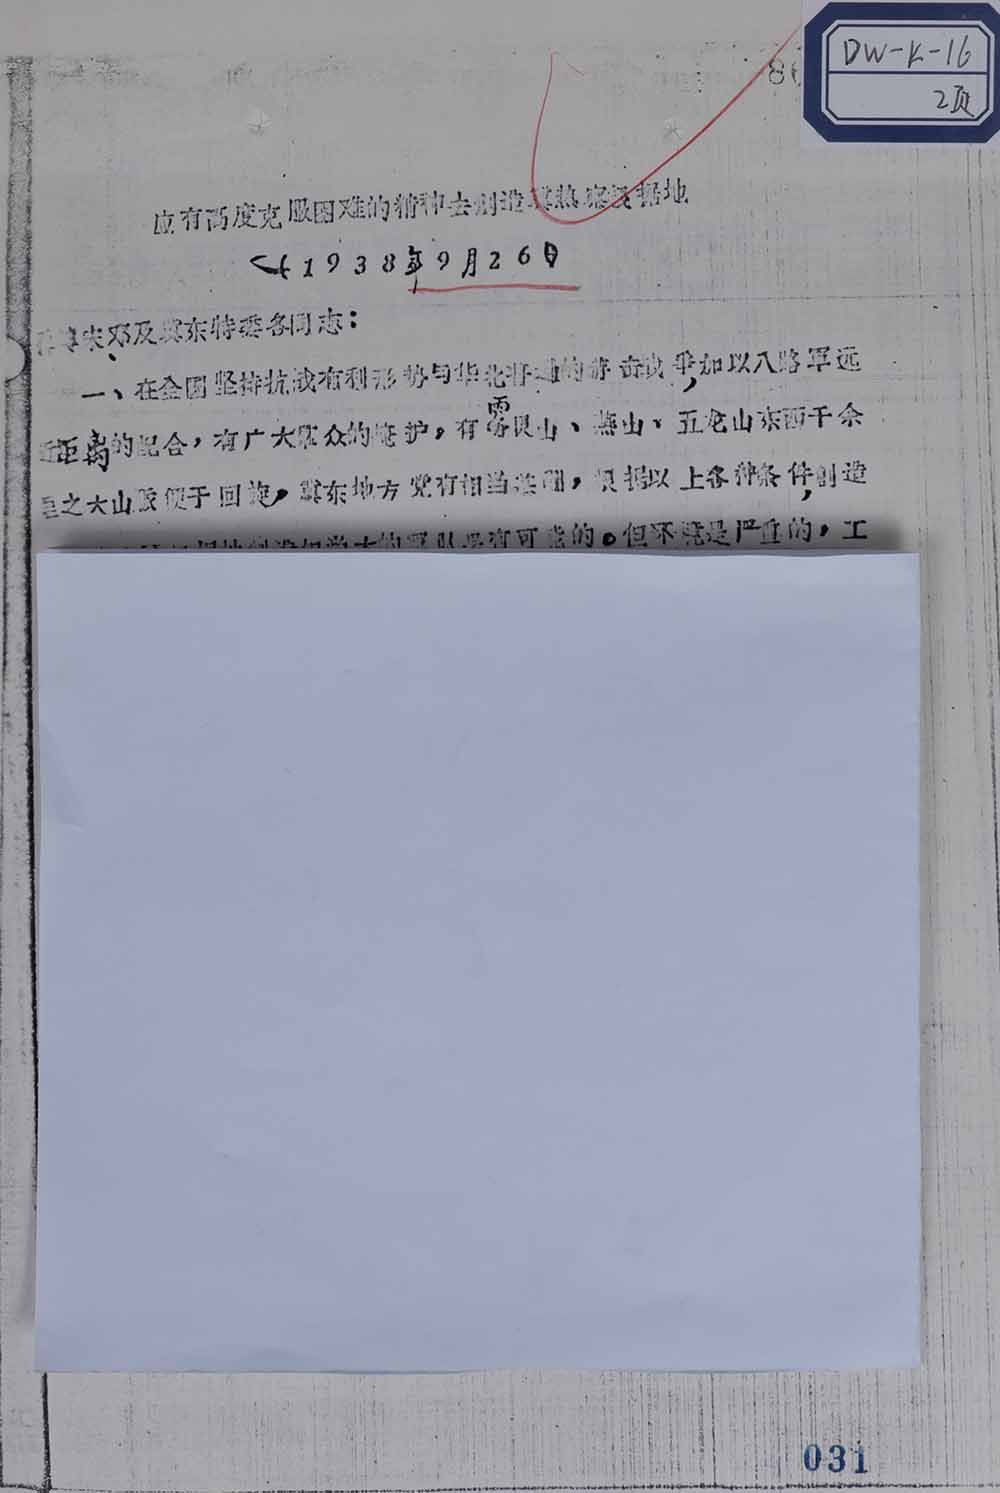 DW-K-16
2页
86
应有高度克服困难的精神去创造冀热察根据地
(1938年9月26日
宋、邓及冀东特委各同志：
一、在全国坚持抗战有利形势与华北普遍的游击战争，加以八路军远
近距离的配合，有广大群众的掩护，有雾灵山、燕山、五龙山东西千余
里之大山脉便于回旋，冀东地方党有相当基础，根据以上各种条件，创造
根据地创造相当大的军队是有可能的。但环境是严重的，工
031